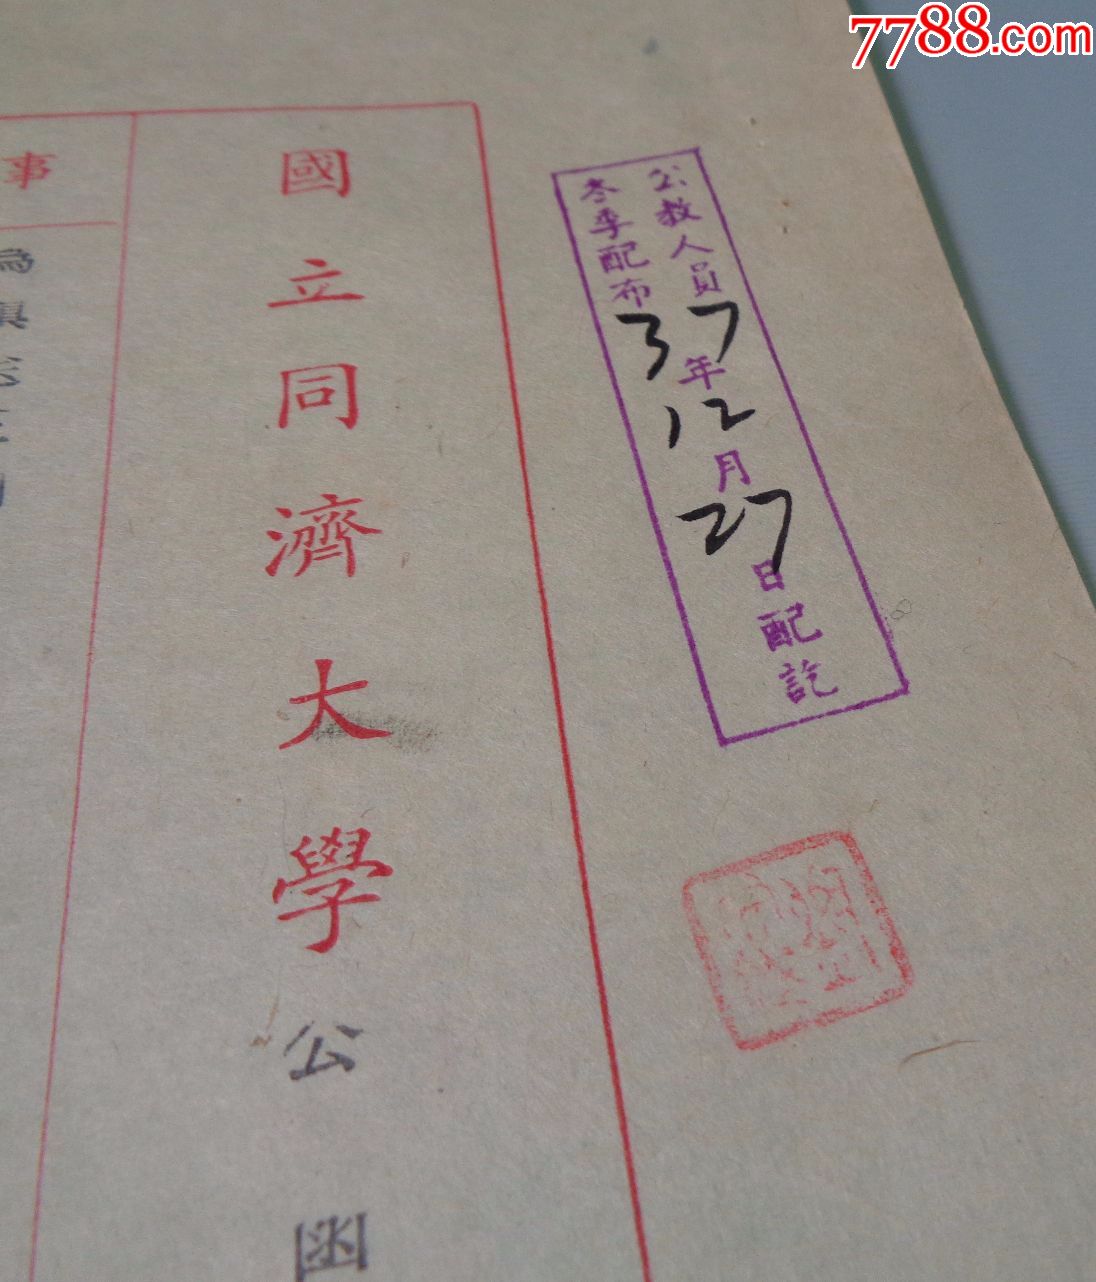 7788.com
公教人員
冬季配布
37年
12月
27日配訖
國立同濟大學公函
事
為